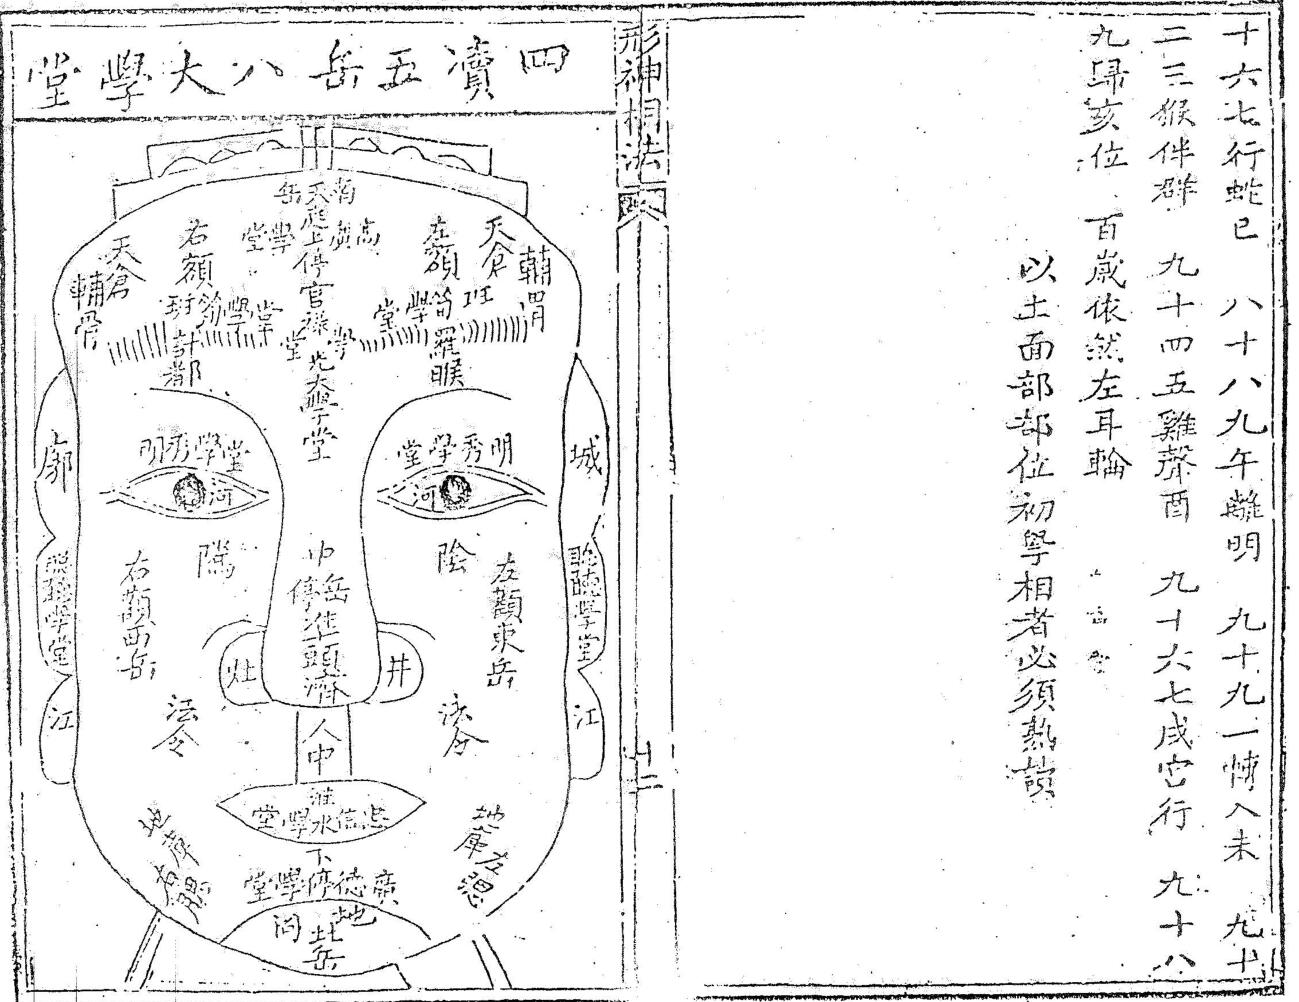 十六七行蛇巳　八十八九午離明　九十九一情入未　九十
二三猴伴群　九十四五雞聲酉　九十六七戌宮行　九十八
九歸亥位　百歲依然左耳輪
以土面部部位初學相者必須熟讀
形神相法
十二
四瀆五岳八大學堂
南岳
天庭上停官祿
高廣學堂
左額
天倉
輔骨
班筍學堂
羅睺
右額
天倉
輔骨
班筍學堂
計都
學堂
光大學堂
明秀學堂
明秀學堂
河
河
城
廓
陰
隲
聰聽學堂
聰聽學堂
左顴東岳
右顴西岳
中岳
停準頭濟
井
灶
江
江
法令
法令
人中
淮水
忠信學堂
地庫左腮
地庫右腮
下停
廣德學堂
地閣
北岳